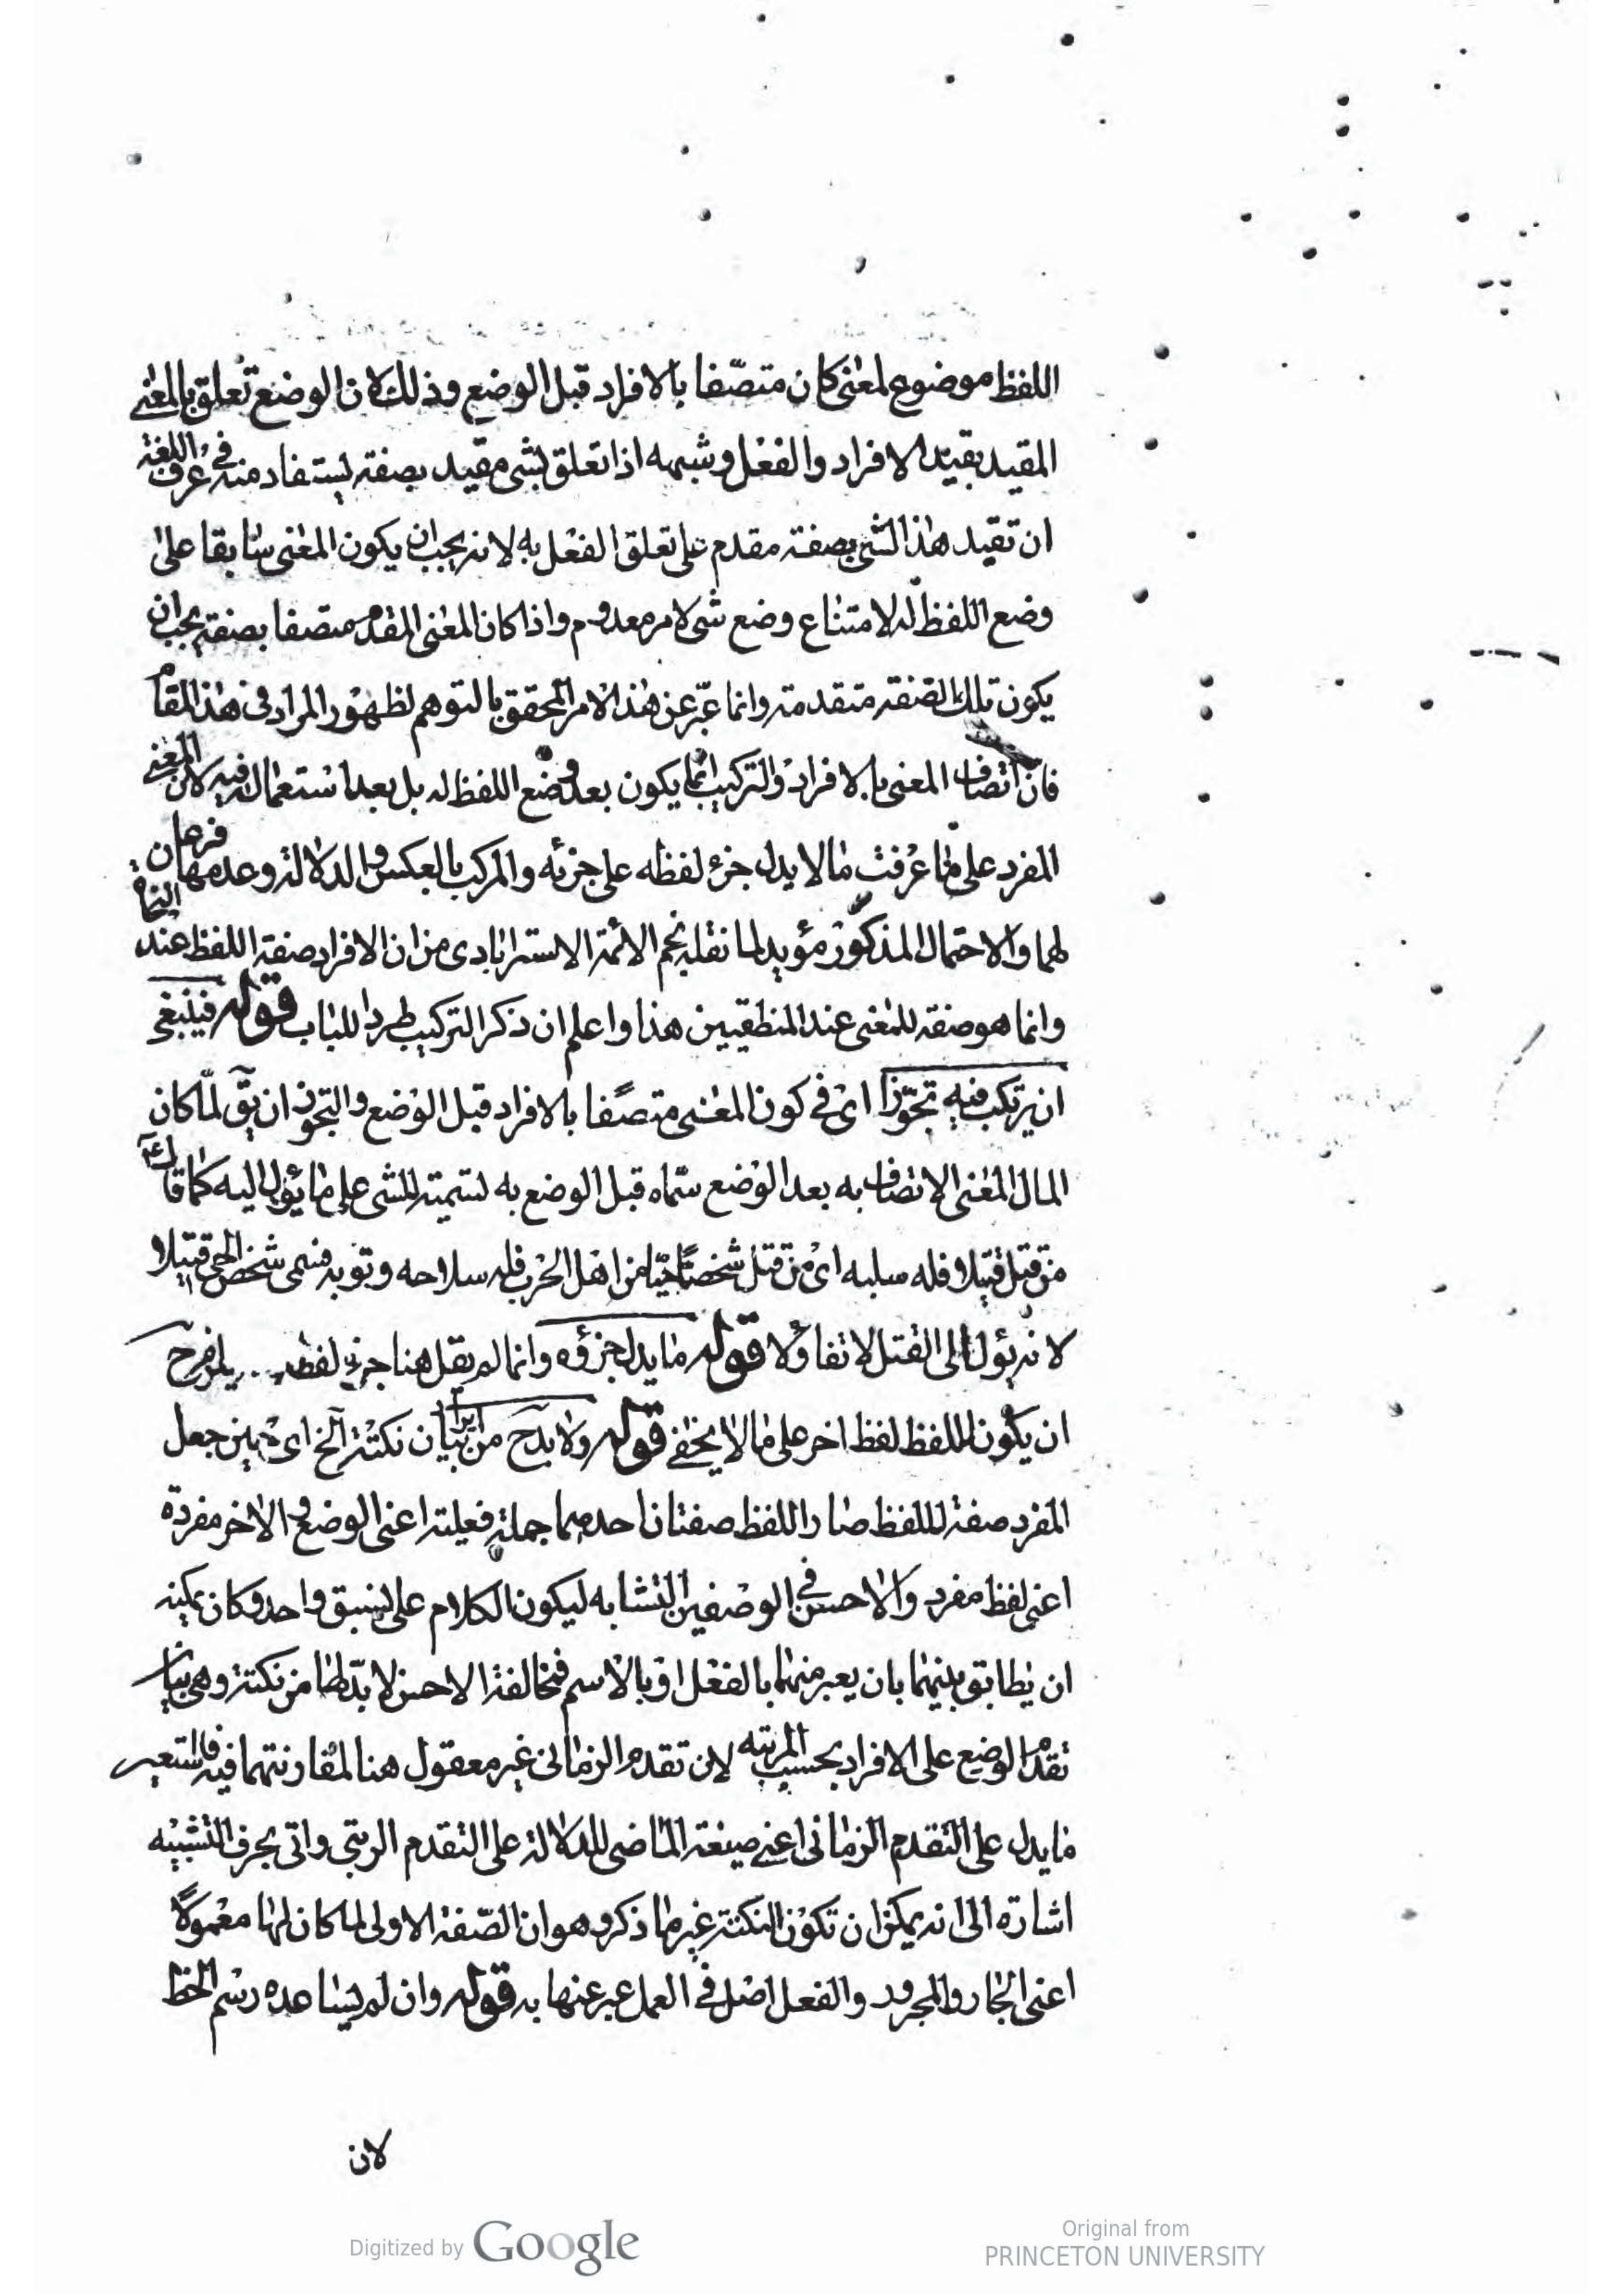 اللفظ موضوع لمعنى كان متصّفا بالافراد قبل الوضع وذلك لان الوضع تعلق بالمعنى
المقيد بقيد الافراد والفعل وشبهه اذا تعلق بشئ مقيد بصفة يستفاد منه في عرف اللغة
ان تقيد هذا الشئ بصفة مقدم على تعلق الفعل به لانه يجب ان يكون المعنى سابقا على
وضع اللفظ له لامتناع وضع شئ لامر معدوم واذا كان المعنى المقدم متصفا بصفة يجب ان
يكون تلك الصفة متقدمة وانما عبّر عن هذا الامر المحقق بالتوهم لظهور المراد في هذا المقام
فان اتصاف المعنى بالافراد والتركيب انما يكون بعد وضع اللفظ له بل بعد استعماله فيه لان المعنى
المفرد على ما عرفت ما لا يدل جزء لفظه على جزئه والمركب بالعكس والدلالة وعدمها فرعان
لهما والاحتمال المذكور مؤيد لما نقله نجم الائمة الاسترابادى من ان الافراد صفة اللفظ عند النحاة
وانما هو صفة للمعنى عند المنطقيين هذا واعلم ان ذكر التركيب طردا للباب قوله فينبغى
ان يرتكب فيه تجوّزا اى في كون المعنى متصفا بالافراد قبل الوضع والتجوز ان يق لمّا كان
المال المعنى الاتصاف به بعد الوضع سمّاه قبل الوضع به لتسميته للشئ على ما يؤل اليه كما قال ع
من قتل قتيلا فله سلبه اى من قتل شخصا حيّا من اهل الحرب فله سلاحه وثوبه فسمى شخص الحى قتيلا
لانه يؤل الى القتل لا تفاؤلا قوله ما يدل جزؤه وانما لم يقل هنا جزء لفظه يلزم ح
ان يكون للفظ لفظ اخر على ما لا يخفى قوله ولا بد ح من بيان نكتة الخ اى حين جعل
المفرد صفة للفظ صار اللفظ صفتان احدهما جملة فعلية اعنى الوضع والاخر مفردة
اعنى لفظ مفرد والاحسن في الوصفين التشابه ليكون الكلام على نسق واحد وكان يمكنه
ان يطابق بينهما بان يعبر منهما بالفعل او بالاسم فمخالفة الاحسن لا بدّ لها من نكتة وهى بيان
تقدم الوضع على الافراد بحسب المرتبه لان تقدم الزمانى غير معقول هنا لمقارنتهما فيه فاستعير
ما يدل على التقدم الزمانى اعنى صيغة الماضى للدلالة على التقدم الرتبى واتى بحرف التشبيه
اشارة الى انه يمكن ان تكون النكتة غير ما ذكر وهو ان الصّفة الاولى لما كان لها معمولا
اعنى الجار والمجرور والفعل اصل في العمل عبر عنها به قوله وان لم يساعده رسم الخط
لان
Digitized by Google
Original from
PRINCETON UNIVERSITY